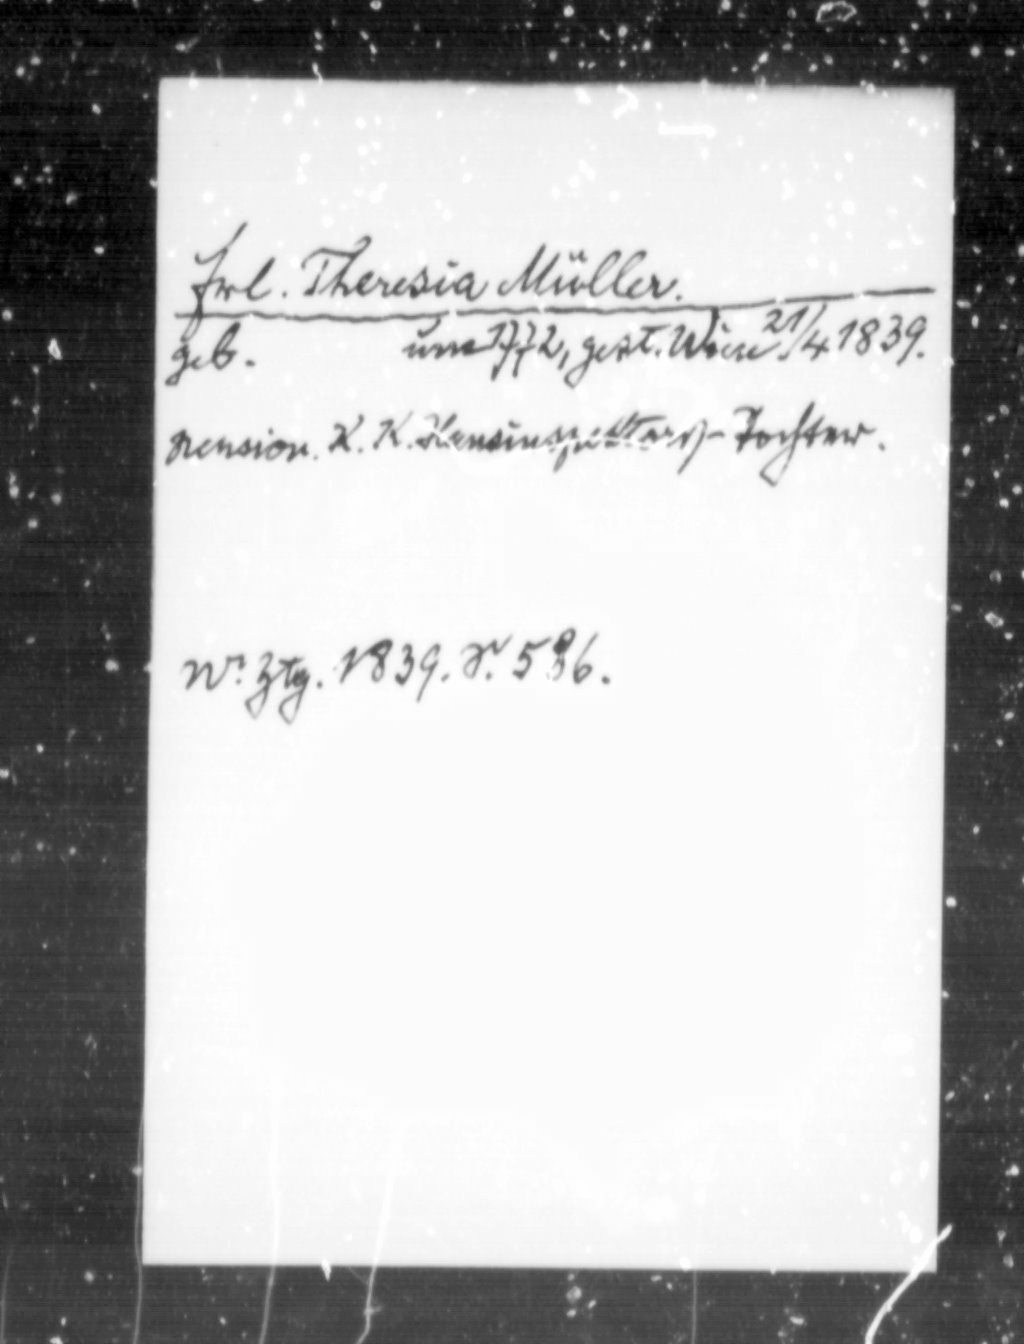 Frl. Theresia Müller.
geb. um 1772, gest. Wien 21/4 1839.
pension. K. K. -Tochter.
Wr. Ztg. 1839. S. 536.